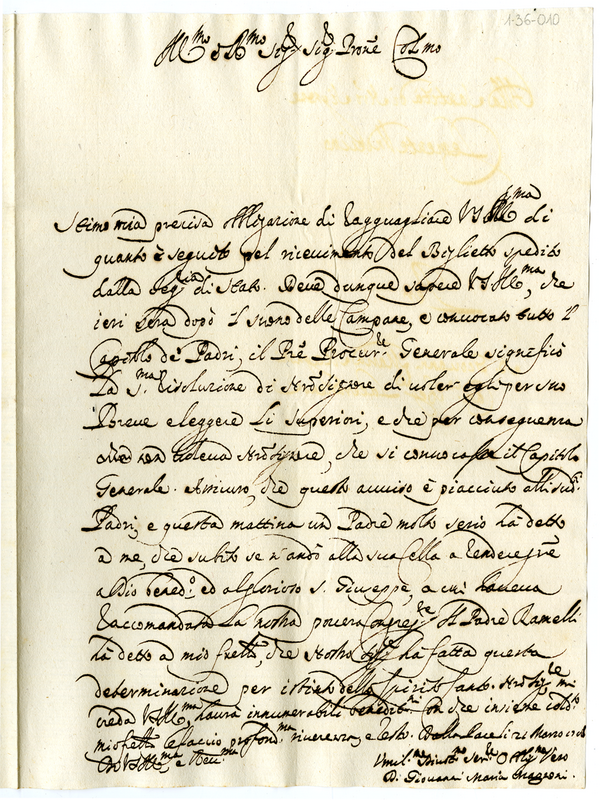 1-36-010
Ill.mo e R.mo Sig.r Sig.r Prone Col.mo
Stimo mia precisa obligazione di ragguagliare VS Ill.ma di
quanto è seguito nel ricevimento del Biglietto spedito
dalla Seg.ria di Stato. Deve dunque sapere VS Ill.ma, che
ieri sera dopò il suono delle Campane, e convocato tutto il
Capitolo de' Padri, il Pre Procur.re Generale significò
la s.ma risoluzione di Nro Signore di voler egli per suo
Breve eleggere li Superiori, e che per conseguenza
non voleva Nro Signore, che si convocasse il Capitolo
Generale. Assicuro, che questo avviso è piaciuto alli
Padri, e questa mattina un Padre molto serio hà detto
a me, che subito se n'andò alla sua cella a rendere gre
a Dio bened.o ed al glorioso S. Giuseppe, a cui haveva
raccomandata la nostra povera Congreg.ne Il Padre Ramelli
hà detto a mio frello, che Nostro Sig.re hà fatta questa
determinazione per istinto dello Spirito Santo. Nro Sig.re mi
creda VS Ill.ma, haurà innumerabili benedit.ni Con che insieme col
mio frello le faccio profond.ma riverenza, e resto. Dalla Pace li 21 Marzo
Di VS Ill.ma, e Rev.ma
Umil.mo Divot.mo Ser.re Oblig.mo Vero
D. Giovanni Maria